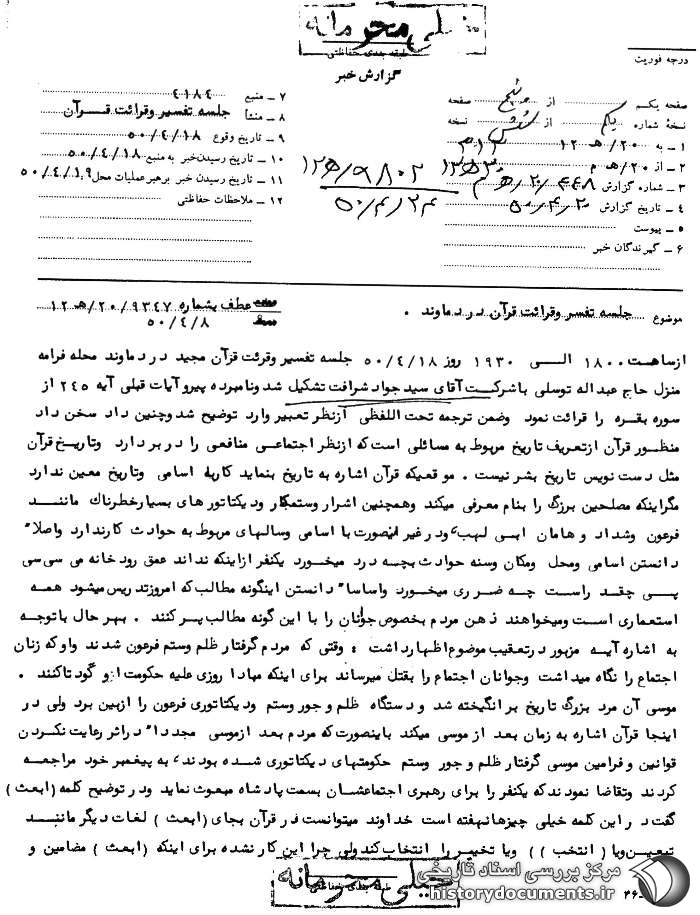 خیلی محرمانه
طبقه بندی حفاظتی
درجه فوریت
گزارش خبر
صفحه یکم از پنج صفحه
نسخه شماره یکم از شش نسخه
۱ - به ۲۰/ هـ ۱۲ ۳۱۲
۲ - از ۲۰/ هـ م
۳ - شماره گزارش ۴۴۸/ ۲۰ هـ م
۴ - تاریخ گزارش ۵۰/۴/۲۰
۵ - پیوست
۶ - گیرندگان خبر
۷ - منبع ۴۱۸۴
۸ - منشأ جلسه تفسیر وقرائت قرآن
۹ - تاریخ وقوع ۵۰/۴/۱۸
۱۰ - تاریخ رسیدن خبر به منبع ۵۰/۴/۱۸
۱۱ - تاریخ رسیدن خبر برهبر عملیات محل ۵۰/۴/۱۹
۱۲ - ملاحظات حفاظتی
۱۲۵/۹۸۰۲
۵۰/۴/۲۴
موضوع جلسه تفسر وقرائت قرآن در دماوند .
عطف بشماره ۹۳۴۷/ ۲۰/هـ ۱۲
۵۰/۴/۸
ازساعت ۱۸۰۰ الی ۱۹۳۰ روز ۵۰/۴/۱۸ جلسه تفسیر وقرئت قرآن مجید در دماوند محله فرامه
منزل حاج عبداله توسلی باشرکت آقای سید جواد شرافت تشکیل شد ونامبرده پیرو آیات قبلی آیه ۲۴۵ از
سوره بقره را قرائت نمود وضمن ترجمه تحت اللفظی ازنظر تعبیر وارد توضیح شد وچنین داد سخن داد
منظور قرآن از تعریف تاریخ مربوط به مسائلی است که ازنظر اجتماعی منافعی را در بر دارد وتاریخ قرآن
مثل دست نویس تاریخ بشر نیست . موقعیکه قرآن اشاره به تاریخ بنماید کاربه اسامی وتاریخ معین ندارد
مگراینکه مصلحین بزرگ را بنام معرفی میکند وهمچنین اشرار وستمکار ودیکتاتور های بسیارخطرناک مانند
فرعون وشداد و هامان ابی لهب، ودر غیر اینصورت با اسامی وسالهای مربوط به حوادث کارندارد واصلا"
دانستن اسامی ومحل ومکان وسنه حوادث بچه درد میخورد یکنفر ازاینکه نداند عمق رود خانه می سی سی
پی چقد راست چه ضرری میخورد واساسا" دانستن اینگونه مطالب که امروزتدریس میشود همه
استعماری است ومیخواهند ذهن مردم بخصوص جوانان را با این گونه مطالب پر کنند . بهر حال باتوجه
به اشاره آیه مزبور درتعقیب موضوع اظهارداشت : وقتی که مردم گرفتار ظلم وستم فرعون شدند واوکه زنان
اجتماع را نگاه میداشت وجوانان اجتماع را بقتل میرساند برای اینکه مبادا روزی علیه حکومت او کودتاکنند .
موسی آن مرد بزرگ تاریخ بر انگیخته شد و دستگاه ظلم و جور وستم ودیکتاتوری فرعون را ازبین برد ولی در
اینجا قرآن اشاره به زمان بعد از موسی میکند باینصورت که مردم بعد ازموسی مجددا" دراثر رعایت نکردن
قوانین و فرامین موسی گرفتار ظلم و جور وستم حکومتهای دیکتاتوری شده بودند، به پیغمبر خود مراجعه
کردند وتقاضا نمودند که یکنفر را برای رهبری اجتماعشان بسمت پادشاه مبعوث نماید ودر توضیح کلمه ( ابعث )
گفت در این کلمه خیلی چیزها نهفته است خداوند میتوانست در قرآن بجای ( ابعث ) لغات دیگر مانند
تعیین ویا ( انتخب ) ) ویا تخییر را انتخاب کند ولی چرا این کار نشده برای اینکه ( ابعث ) مضامین و
خیلی محرمانه
طبقه بندی حفاظتی
مرکز بررسی اسناد تاریخی
historydocuments.ir